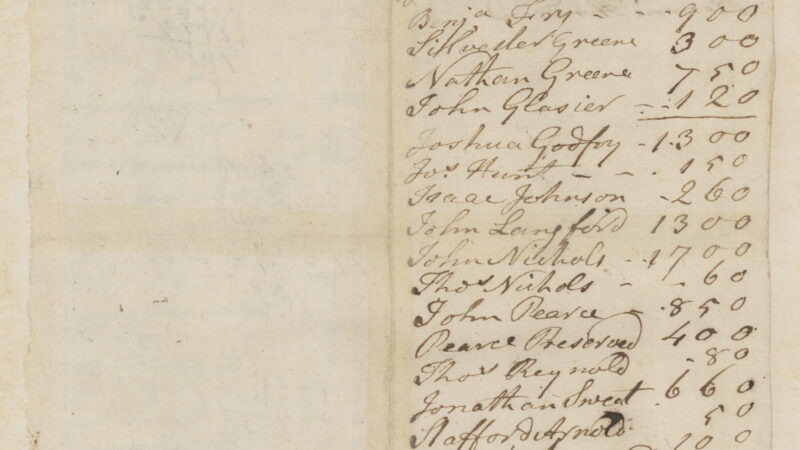 Benja Fry - - . 900
Silvester Greene 300
Nathan Greene 750
John Glasier - - . 120
Joshua Godfry - 1300
Jos. Hunt - - . 150
Isaac Johnson - 260
John Langford 1300
John Nichols - - 1700
Thos Nichols - - 60
John Pearce - . 850
Pearce Preserved 400
Thos Reynold - 80
Jonathan Sweet . 660
Stafford Arnold . 50
100